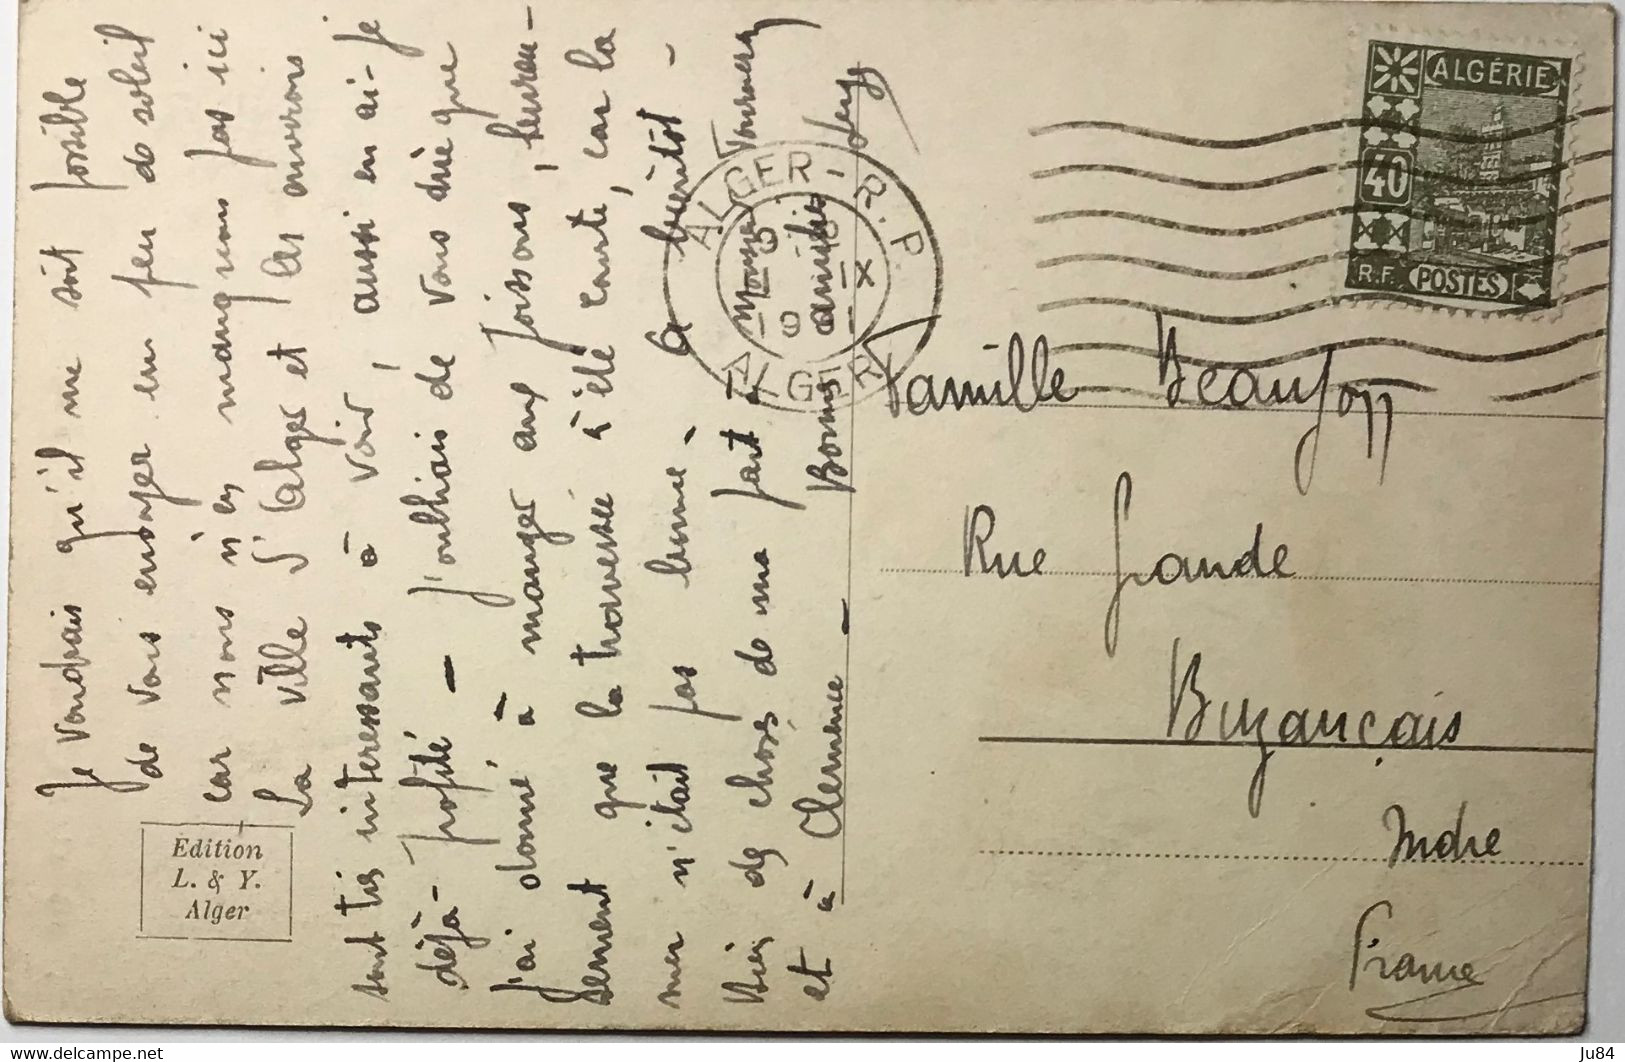 Je voudrais qu'il me soit possible
de vous envoyer un peu de soleil
car nous n'en manquons pas ici
La ville d'Alger et les environs
sont très interessants à voir, aussi en ai-je
déjà profité — J'oubliais de vous dire que
j'ai donné à manger aux poissons, heureu-
sement que la traversée à été courte, car la
mer n'était pas bonne - A bientôt -
Bien des choses de ma part à
et à Clemence — Bonnes amitiés
Edition
L. & Y.
Alger
ALGER. R.P.
ALGER
ALGÉRIE
40
R.F. POSTES
Famille
Rue Grande
Buzançais
Indre
France
delcampe.net
Ju84